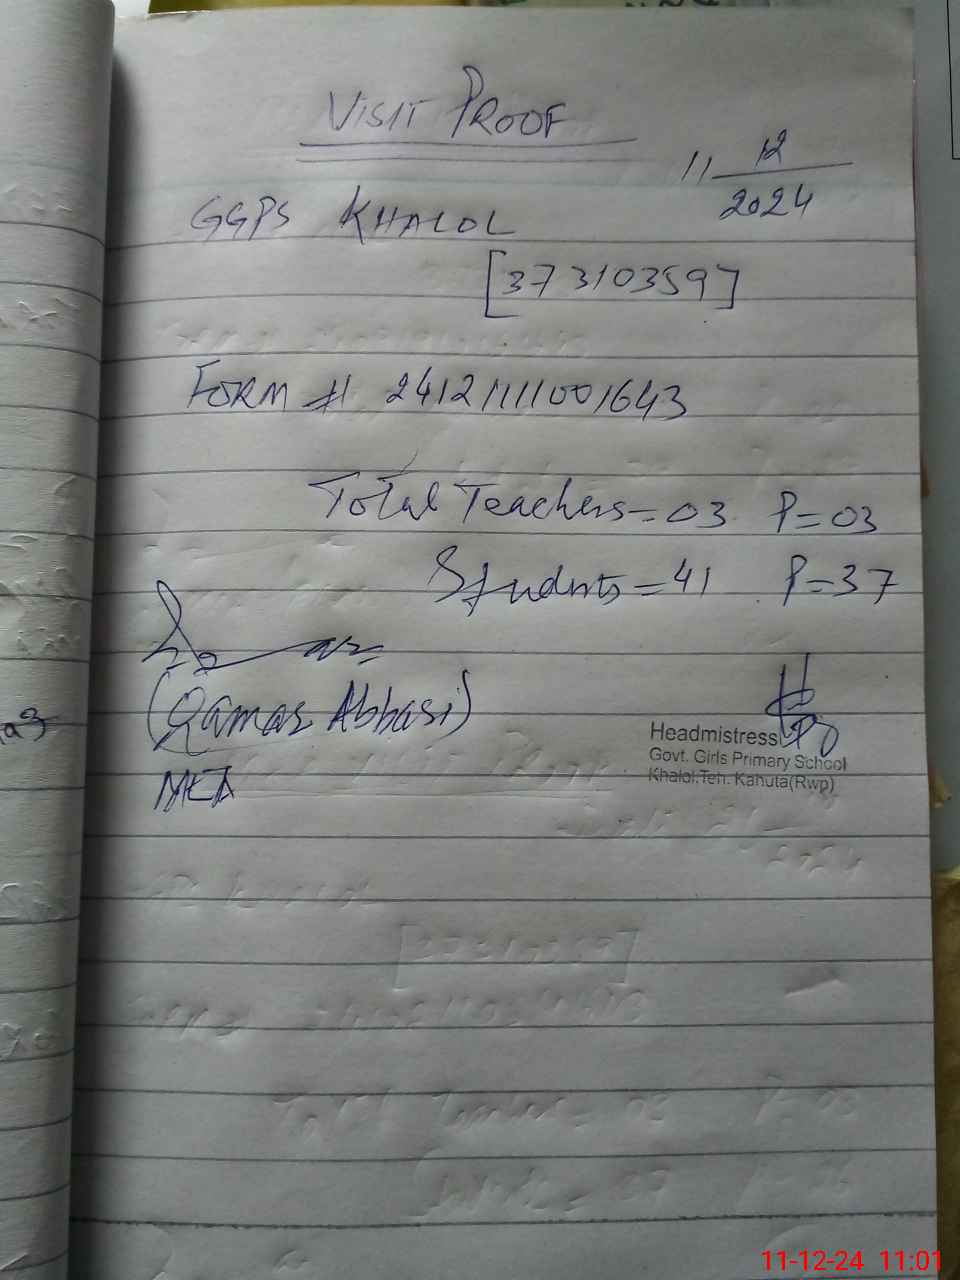 VISIT PROOF
11 12
2024
GGPS KHALOL
[37310359]
FORM # 24121111001643
Total Teachers = 03 P = 03
Students = 41 P = 37
(Qamar Abbasi)
MEA
Headmistress
Govt. Girls Primary School
Khalol.Teh. Kahuta(Rwp)
11-12-24 11:01